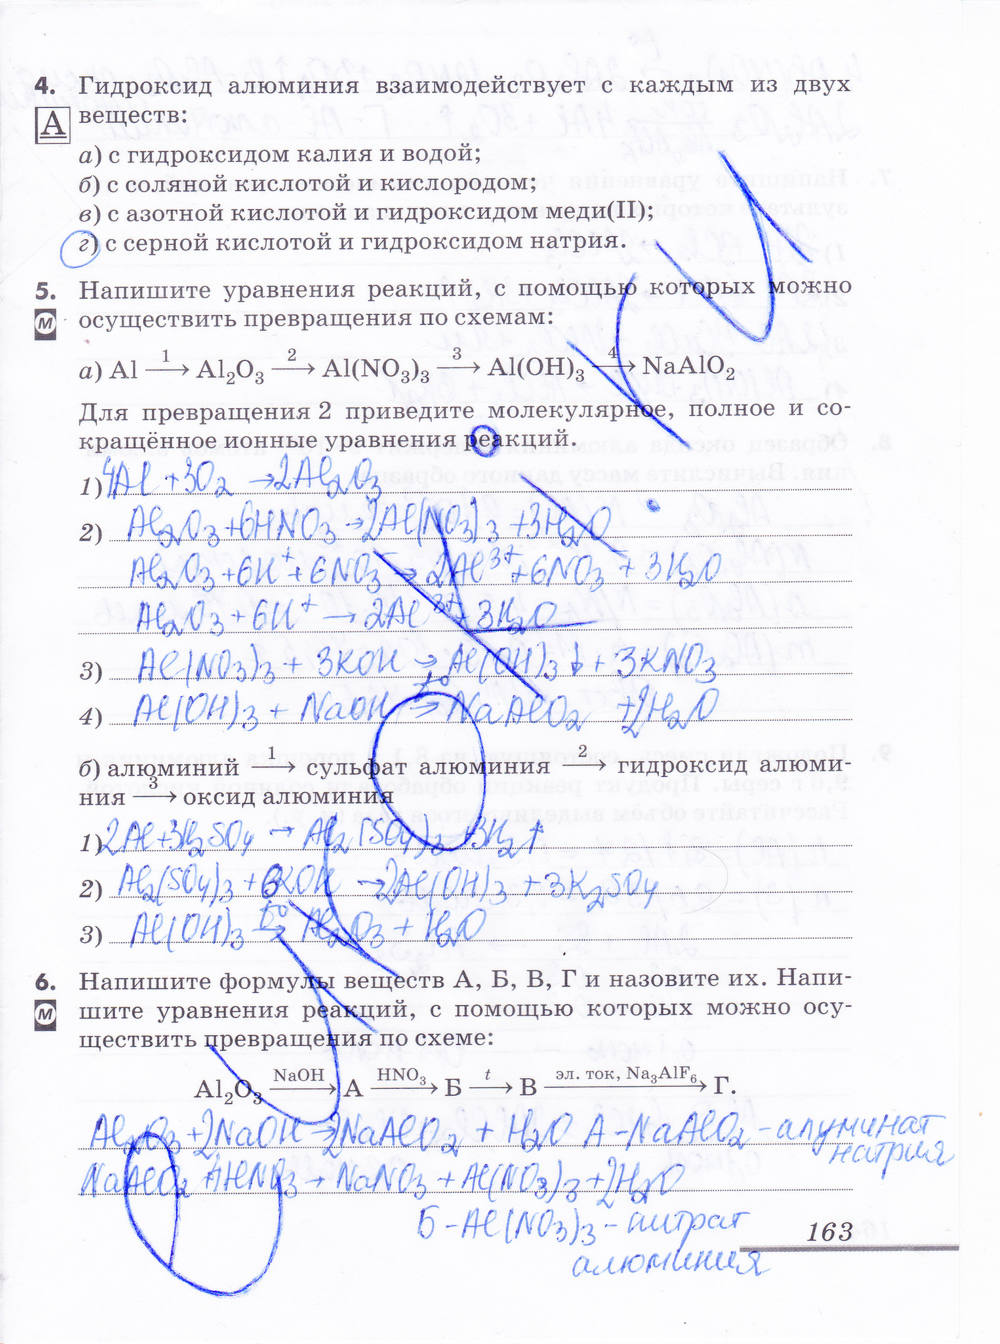 4. Гидроксид алюминия взаимодействует с каждым из двух
А веществ:
а) с гидроксидом калия и водой;
б) с соляной кислотой и кислородом;
в) с азотной кислотой и гидроксидом меди(II);
г) с серной кислотой и гидроксидом натрия.
5. Напишите уравнения реакций, с помощью которых можно
М осуществить превращения по схемам:
а) Al —1→ Al₂O₃ —2→ Al(NO₃)₃ —3→ Al(OH)₃ —4→ NaAlO₂
Для превращения 2 приведите молекулярное, полное и со-
кращённое ионные уравнения реакций.
1) 4Al + 3O₂ → 2Al₂O₃
2) Al₂O₃ + 6HNO₃ → 2Al(NO₃)₃ + 3H₂O
Al₂O₃ + 6H⁺ + 6NO₃⁻ → 2Al³⁺ + 6NO₃⁻ + 3H₂O
Al₂O₃ + 6H⁺ → 2Al³⁺ + 3H₂O
3) Al(NO₃)₃ + 3KOH → Al(OH)₃↓ + 3KNO₃
4) Al(OH)₃ + NaOH t°→ NaAlO₂ + 2H₂O
б) алюминий —1→ сульфат алюминия —2→ гидроксид алюми-
ния —3→ оксид алюминия
1) 2Al + 3H₂SO₄ → Al₂(SO₄)₃ + 3H₂↑
2) Al₂(SO₄)₃ + 6KOH → 2Al(OH)₃ + 3K₂SO₄
3) Al(OH)₃ t°→ Al₂O₃ + H₂O
6. Напишите формулы веществ А, Б, В, Г и назовите их. Напи-
М шите уравнения реакций, с помощью которых можно осу-
ществить превращения по схеме:
Al₂O₃ —NaOH→ А —HNO₃→ Б —t→ В —эл. ток, Na₃AlF₆→ Г.
Al₂O₃ + 2NaOH → 2NaAlO₂ + H₂O А - NaAlO₂ - алуминат
натрия
NaAlO₂ + 4HNO₃ → NaNO₃ + Al(NO₃)₃ + 2H₂O
Б - Al(NO₃)₃ - нитрат
алюминия
163